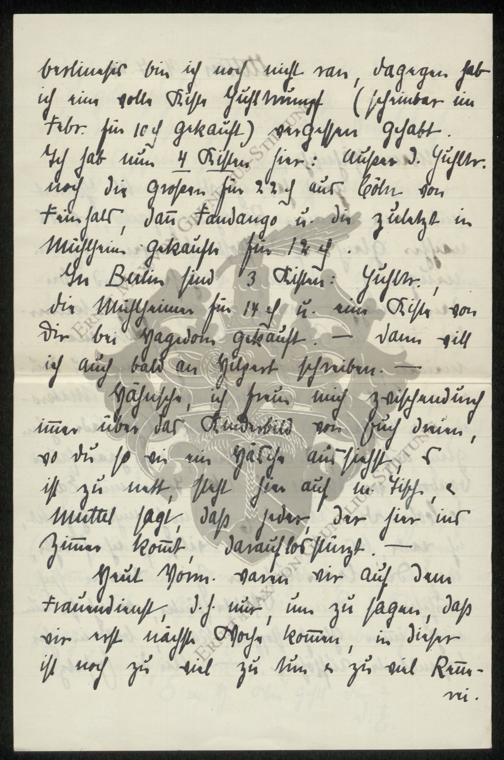 berlinehr bin ich noch nicht ran, dagegen hab
ich eine volle Kiste Huhltrumpf (scheinbar im
Febr. für 10 ₰ gekauft) vergessen gehabt.
Ich hab nun 4 Kisten hier: Außer d. Huhltr.
noch die großen für 22 ₰ aus Cöln von
Feinhals, dann Fandango u. die zuletzt in
Mühlheim gekaufte für 12 ₰.
In Berlin sind 3 Kisten: Huhltr.,
die Mühlheimer für 14 ₰ u. eine Kiste von
Dir bei Hagedorn gekauft. — Dann will
ich auch bald an Hilpert schreiben. —
ich freu mich zwischendurch
immer über das Kinderbild von Euch dreien,
wo du so wie ein Häschen aussiehst, es
ist zu nett, steht hier auf m. Tisch, u
Muttel sagt, daß jeder, der hier ins
Zimmer kommt, darauflosstürzt. —
Heut Vorm. waren wir auf dem
Frauendienst, d.h nur, um zu sagen, daß
wir erst nächste Woche kommen, in dieser
ist noch zu viel zu tun u zu viel Renne-
rei.
ERNST MAX VON GRUNELIUS-STIFTUNG